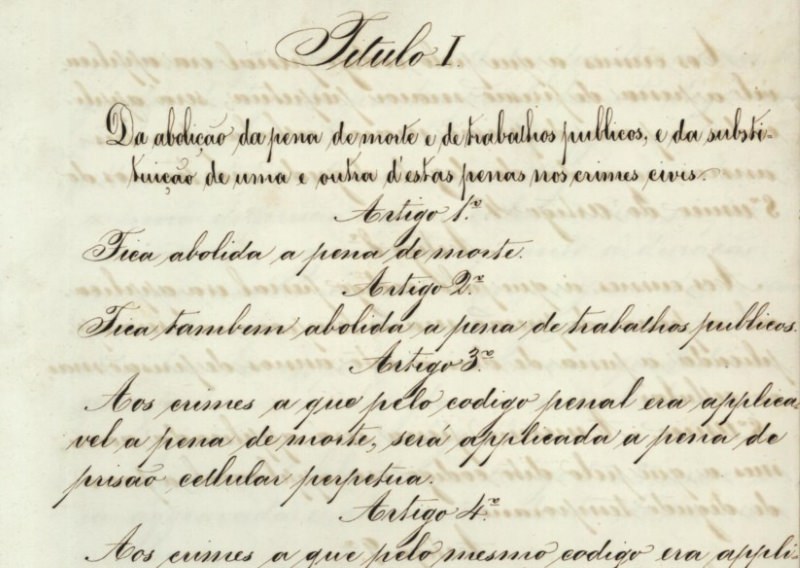 Titulo I.
Da abolição da pena de morte e de trabalhos publicos, e da substi-
tuição de uma e outra d'estas penas nos crimes civis.
Artigo 1.º
Fica abolida a pena de morte.
Artigo 2.º
Fica tambem abolida a pena de trabalhos publicos.
Artigo 3.º
Aos crimes a que pelo codigo penal era applica-
vel a pena de morte, será applicada a pena de
prisão cellular perpetua.
Artigo 4.º
Aos crimes a que pelo mesmo codigo era appli-